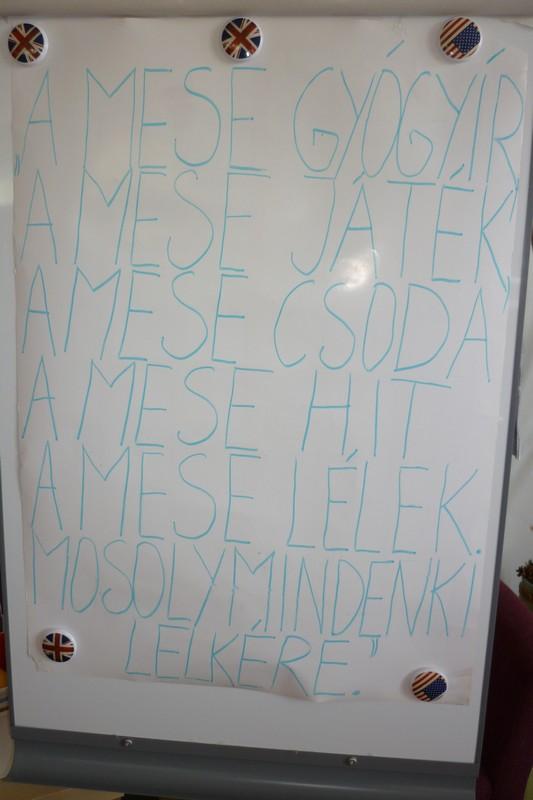 „A MESE GYÓGYÍR,
A MESE JÁTÉK,
A MESE CSODA,
A MESE HIT
A MESE LÉLEK.
MOSOLY MINDENKI
LELKÉRE.”